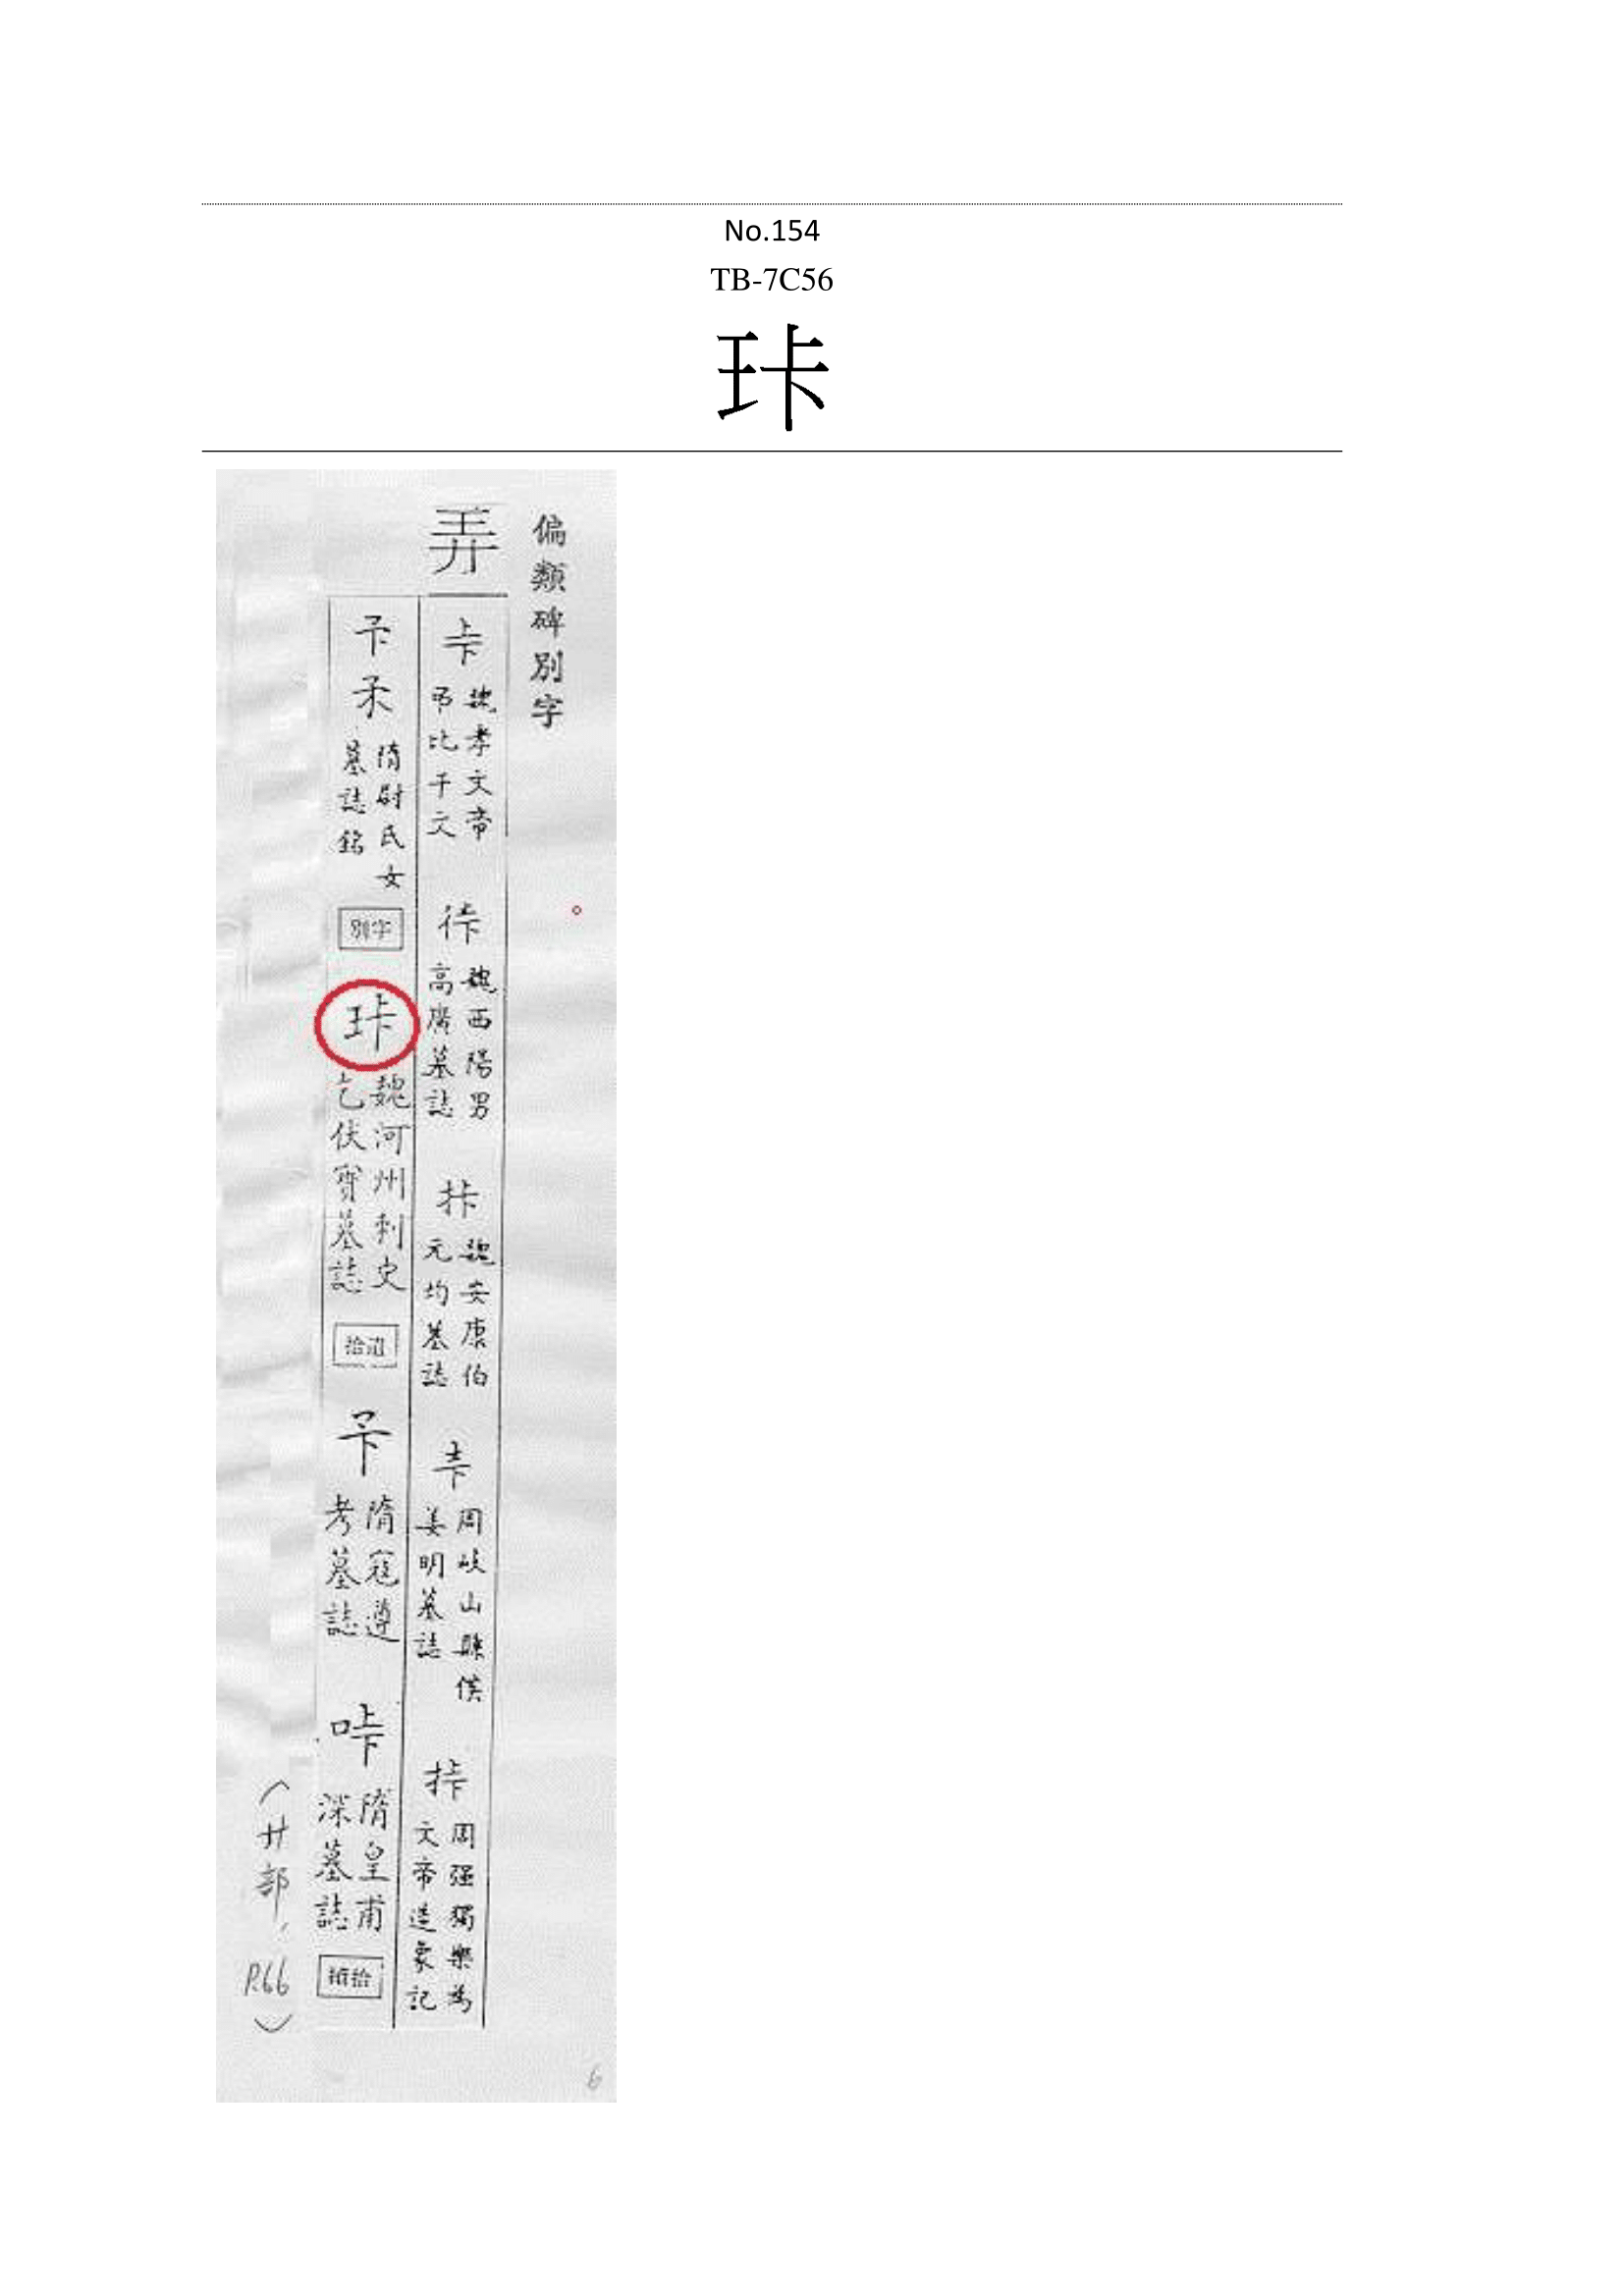 No.154
TB-7C56
𤤒
偏類碑別字
弄
𠧗 魏孝文帝
弔比干文
魏西陽男
高廣墓誌
挊 魏安康伯
元均墓誌
周岐山縣侯
姜明墓誌
挊 周强獨樂為
文帝造象記
隋尉氏女
墓誌銘
別字
魏河州刺史
乞伏寶墓誌
隋寇遵
考墓誌
咔 隋皇甫
深墓誌
(廾部,
P.66)
6